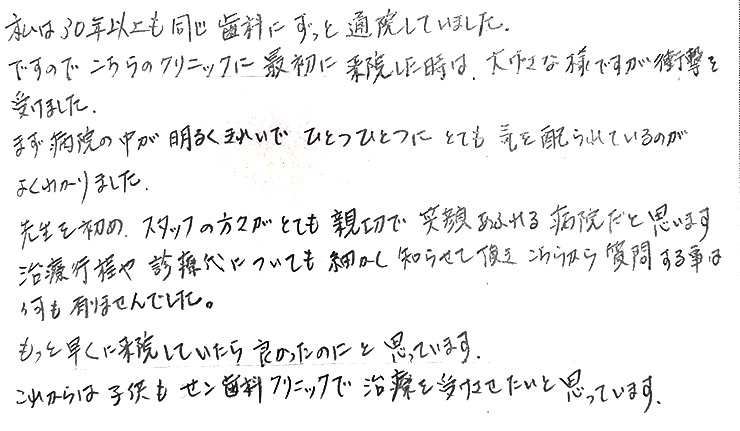 私は30年以上も同じ歯科にずっと通院していました.
ですのでこちらのクリニックに最初に来院した時は、大げさな様ですが衝撃を
受けました.
まず病院の中が明るくきれいでひとつひとつにとても気を配られているのが
よくわかりました.
先生を初め、スタッフの方々がとても親切で笑顔あふれる病院だと思います
治療行程や診療代についても細かく知らせて頂きこちらから質問する事は
何も有りませんでした。
もっと早くに来院していたら良かったのにと思っています.
これからは子供もセン歯科クリニックで治療を受けさせたいと思っています.